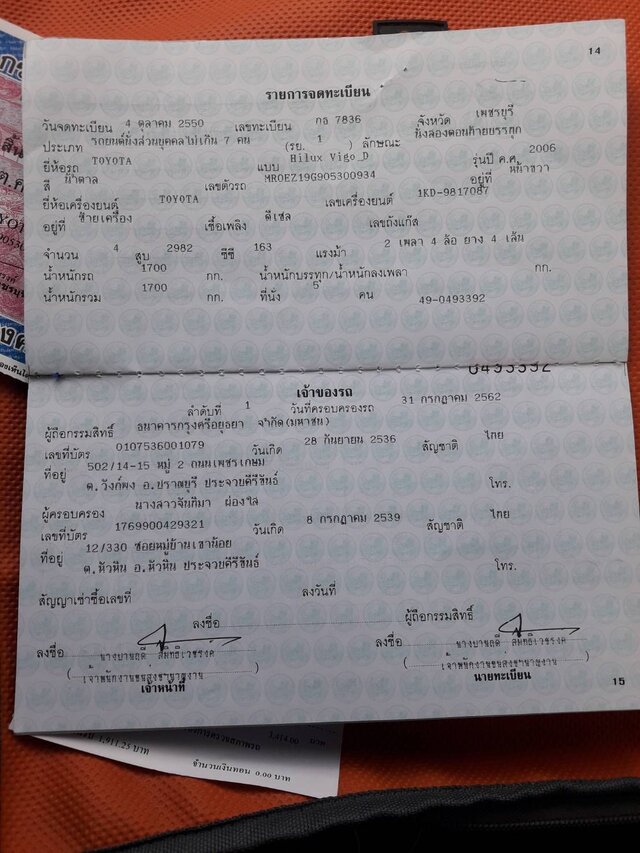 14
รายการจดทะเบียน
วันจดทะเบียน 4 ตุลาคม 2550 เลขทะเบียน กล 7836 จังหวัด เพชรบุรี
ประเภท รถยนต์นั่งส่วนบุคคลไม่เกิน 7 คน (รย. 1 ) ลักษณะ นั่งสองตอนท้ายบรรทุก
ยี่ห้อรถ TOYOTA แบบ Hilux Vigo_D รุ่นปี ค.ศ. 2006
สี น้ำตาล เลขตัวรถ MROEZ19G905300934 อยู่ที่ หน้าขวา
ยี่ห้อเครื่องยนต์ TOYOTA เลขเครื่องยนต์ 1KD-9817087
อยู่ที่ ซ้ายเครื่อง เชื้อเพลิง ดีเซล เลขถังแก๊ส
จำนวน 4 สูบ 2982 ซีซี 163 แรงม้า 2 เพลา 4 ล้อ ยาง 4 เส้น
น้ำหนักรถ 1700 กก. น้ำหนักบรรทุก/น้ำหนักลงเพลา กก.
น้ำหนักรวม 1700 กก. ที่นั่ง 5 คน 49-0493392
0493392
เจ้าของรถ
ลำดับที่ 1 วันที่ครอบครองรถ 31 กรกฎาคม 2562
ผู้ถือกรรมสิทธิ์ ธนาคารกรุงศรีอยุธยา จำกัด(มหาชน)
เลขที่บัตร 0107536001079 วันเกิด 28 กันยายน 2536 สัญชาติ ไทย
ที่อยู่ 502/14-15 หมู่ 2 ถนนเพชรเกษม
ต.วังก์พง อ.ปราณบุรี ประจวบคีรีขันธ์ โทร.
ผู้ครอบครอง นางสาวจันทิมา ผ่องใส
เลขที่บัตร 1769900429321 วันเกิด 8 กรกฎาคม 2539 สัญชาติ ไทย
ที่อยู่ 12/330 ซอยหมู่บ้านเขาน้อย
ต.หัวหิน อ.หัวหิน ประจวบคีรีขันธ์ โทร.
สัญญาเช่าซื้อเลขที่ ลงวันที่
ลงชื่อ ผู้ถือกรรมสิทธิ์
ลงชื่อ ลงชื่อ
เจ้าหน้าที่ นายทะเบียน
15
1,911.25 บาท 3,414.00 บาท
จำนวนเงินทอน 0.00 บาท